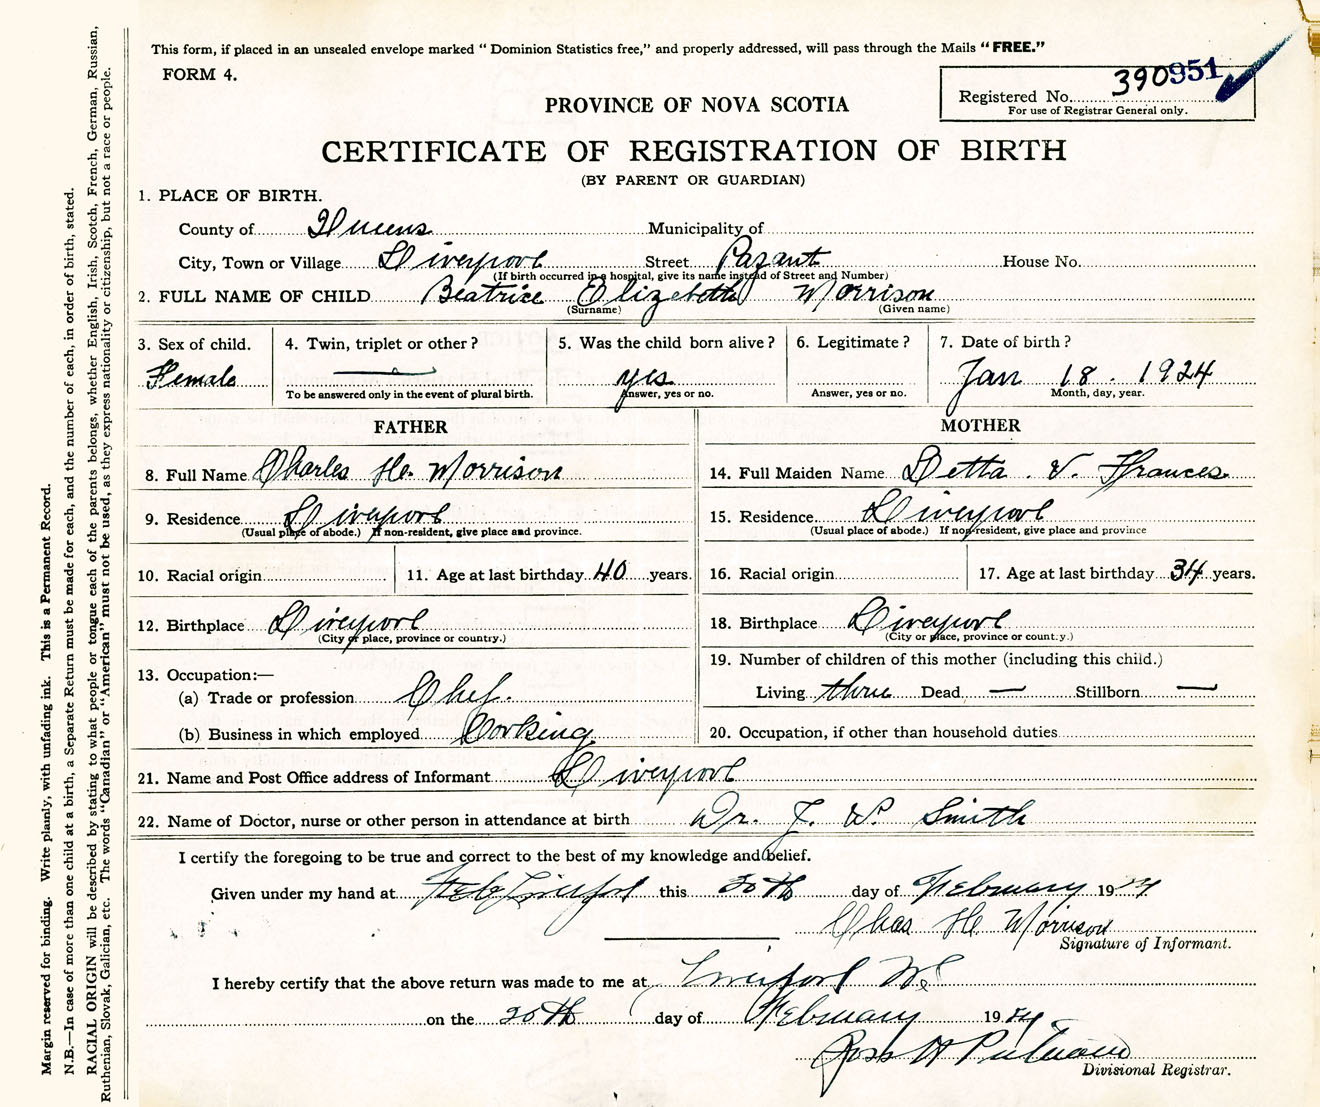 This form, if placed in an unsealed envelope marked “ Dominion Statistics free,” and properly addressed, will pass through the Mails “ FREE.”
FORM 4.
Registered No. 390951
For use of Registrar General only.
PROVINCE OF NOVA SCOTIA
CERTIFICATE OF REGISTRATION OF BIRTH
(BY PARENT OR GUARDIAN)
1. PLACE OF BIRTH.
County of Queens Municipality of
City, Town or Village Liverpool Street Pazant House No.
(If birth occurred in a hospital, give its name instead of Street and Number)
2. FULL NAME OF CHILD Beatrice Elizabeth Morrison
(Surname) (Given name)
3. Sex of child. 4. Twin, triplet or other ? 5. Was the child born alive ? 6. Legitimate ? 7. Date of birth ?
Female — yes Jan 18. 1924
To be answered only in the event of plural birth. Answer, yes or no. Answer, yes or no. Month, day, year.
FATHER MOTHER
8. Full Name Charles H. Morrison 14. Full Maiden Name Letta . V. Frances
9. Residence Liverpool 15. Residence Liverpool
(Usual place of abode.) If non-resident, give place and province. (Usual place of abode.) If non-resident, give place and province
10. Racial origin 11. Age at last birthday 40 years. 16. Racial origin 17. Age at last birthday 34 years.
12. Birthplace Liverpool 18. Birthplace Liverpool
(City or place, province or country.) (City or place, province or country.)
13. Occupation:— 19. Number of children of this mother (including this child.)
(a) Trade or profession Chef. Living three Dead — Stillborn —
(b) Business in which employed Cooking 20. Occupation, if other than household duties
21. Name and Post Office address of Informant Liverpool
22. Name of Doctor, nurse or other person in attendance at birth Dr. J. W. Smith
I certify the foregoing to be true and correct to the best of my knowledge and belief.
Given under my hand at Liverpool this 20th day of February 1924
Chas H Morrison
Signature of Informant.
I hereby certify that the above return was made to me at Liverpool
on the 20th day of February 1924
Ross H
Divisional Registrar.
Margin reserved for binding. Write plainly, with unfading ink. This is a Permanent Record.
N.B.—In case of more than one child at a birth, a Separate Return must be made for each, and the number of each, in order of birth, stated.
RACIAL ORIGIN will be described by stating to what people or tongue each of the parents belongs, whether English, Irish, Scotch, French, German, Russian,
Ruthenian, Slovak, Galician, etc. The words “Canadian” or “American” must not be used, as they express nationality or citizenship, but not a race or people.